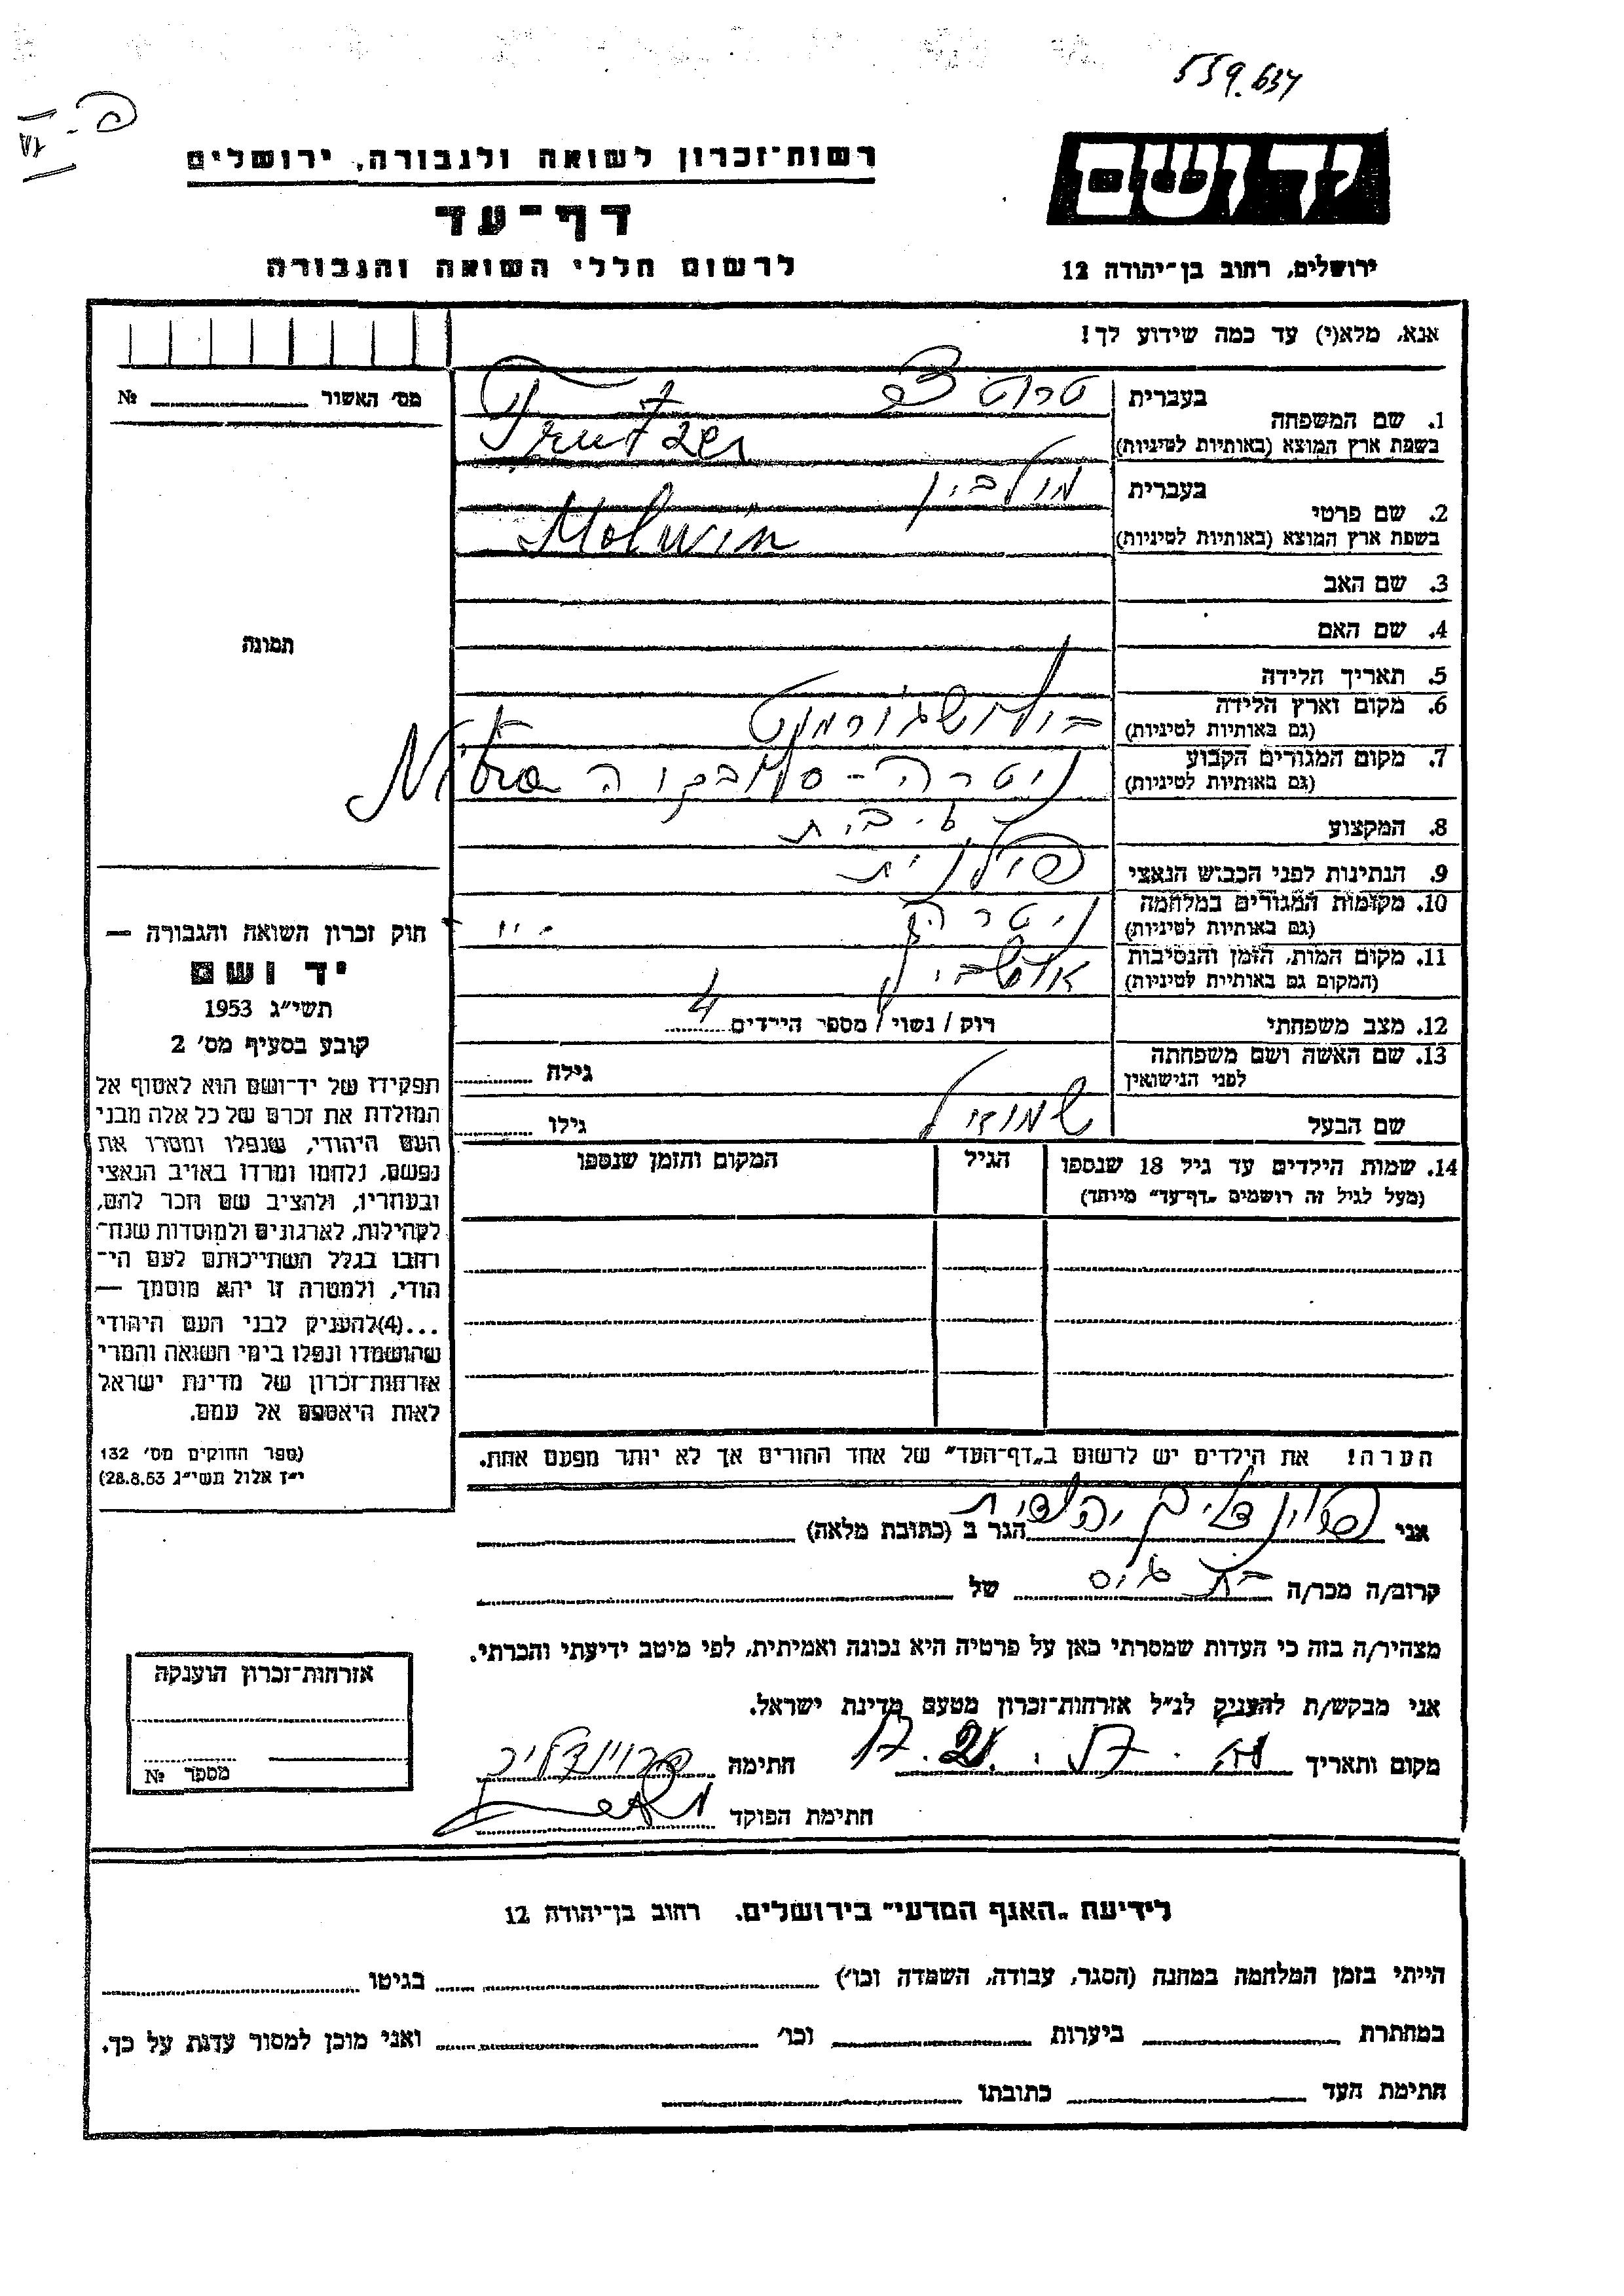 559.634
פ-VI
רשות־זכרון לשואה ולגבורה, ירושלים
יד ושם
דף־עד
לרשום חללי השואה והגבורה
ירושלים, רחוב בן־יהודה 12
אנא, מלא(י) עד כמה שידוע לך!
מס׳ האשור № 
1. שם המשפחה
בעברית
בשפת ארץ המוצא (באותיות לטיניות)
Trutzer
2. שם פרטי
בעברית מולבין
בשפת ארץ המוצא (באותיות לטיניות) Molwin
3. שם האב
4. שם האם
5. תאריך הלידה
6. מקום וארץ הלידה
(גם באותיות לטיניות)
7. מקום המגורים הקבוע ניטרה - סלובקיה Nitra
(גם באותיות לטיניות)
8. המקצוע
9. הנתינות לפני הכבוש הנאצי
10. מקומות המגורים במלחמה ניטרה
(גם באותיות לטיניות)
11. מקום המות, הזמן והנסיבות
(המקום גם באותיות לטיניות)
12. מצב משפחתי רוק / נשוי / מספר הילדים 4
13. שם האשה ושם משפחתה
לפני הנישואין
גילה
שם הבעל שמואל גילו
14. שמות הילדים עד גיל 18 שנספו
(מעל לגיל זה רושמים „דף־עד” מיוחד)
הגיל
המקום והזמן שנספו
הערה! את הילדים יש לרשום ב„דף־העד” של אחד ההורים אך לא יותר מפעם אחת.
תמונה
חוק זכרון השואה והגבורה —
יד ושם
תשי״ג 1953
קובע בסעיף מס׳ 2
תפקידו של יד־ושם הוא לאסוף אל
המולדת את זכרם של כל אלה מבני
העם היהודי, שנפלו ומסרו את
נפשם, נלחמו ומרדו באויב הנאצי
ובעוזריו, ולהציב שם וזכר להם,
לקהילות, לארגונים ולמוסדות שנח־
רחבו בגלל השתייכותם לעם הי־
הודי, ולמטרה זו יהא מוסמך —
...(4)להעניק לבני העם היהודי
שהושמדו ונפלו בימי השואה והמרי
אזרחות־זכרון של מדינת ישראל
לאות היאספם אל עמם.
(ספר החוקים מס׳ 132
י״ז אלול תשי״ג 28.8.53)
אני יהודית הגר ב (כתובת מלאה)
קרוב/ה מכר/ה בת גיס של
מצהיר/ה בזה כי העדות שמסרתי כאן על פרטיה היא נכונה ואמיתית, לפי מיטב ידיעתי והכרתי.
אני מבקש/ת להעניק לנ״ל אזרחות־זכרון מטעם מדינת ישראל.
מקום ותאריך חתימה
חתימת הפוקד
אזרחות־זכרון הוענקה
מספר №
לידיעת „האגף המדעי” בירושלים, רחוב בן־יהודה 12
הייתי בזמן המלחמה במחנה (הסגר, עבודה, השמדה וכו׳) בגיטו
במחתרת ביערות וכו׳ ואני מוכן למסור עדות על כך.
חתימת העד כתובתו